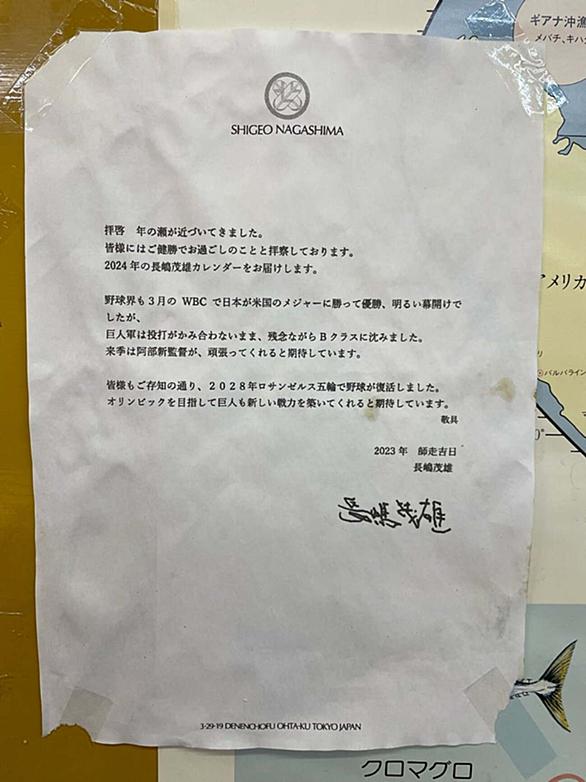 SHIGEO NAGASHIMA
拝啓　年の瀬が近づいてきました。
皆様にはご健勝でお過ごしのことと拝察しております。
2024年の長嶋茂雄カレンダーをお届けします。
野球界も3月の WBC で日本が米国のメジャーに勝って優勝、明るい幕開けで
したが、
巨人軍は投打がかみ合わないまま、残念ながらBクラスに沈みました。
来季は阿部新監督が、頑張ってくれると期待しています。
皆様もご存知の通り、2028年ロサンゼルス五輪で野球が復活しました。
オリンピックを目指して巨人も新しい戦力を築いてくれると期待しています。
敬具
2023年　師走吉日
長嶋茂雄
長嶋茂雄
3-29-19 DENENCHOFU OHTA-KU TOKYO JAPAN
ギアナ沖漁
メバチ、キハ
アメリカ
バルバライン
0°
クロマグロ